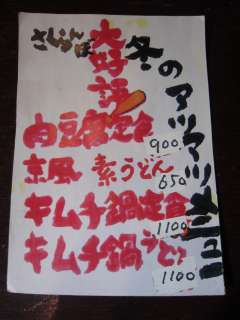 冬のアツアツ
大好評
肉豆腐定食
900
京風 素うどん
650
キムチ鍋定食
1100
キムチ鍋うどん
1100